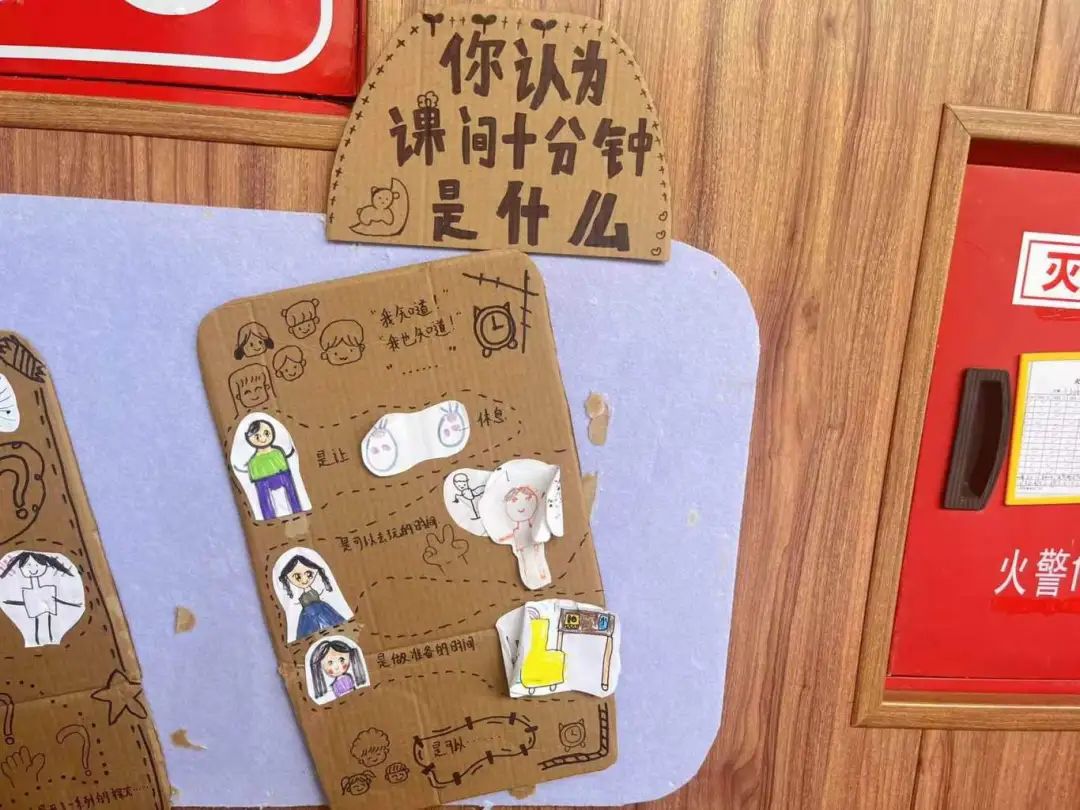 你认为
课间十分钟
是什么
"我知道！"
"我也知道！"
"……"
是让
休息
是可以去玩的时间
是做准备的时间
是可以……
灭
火警